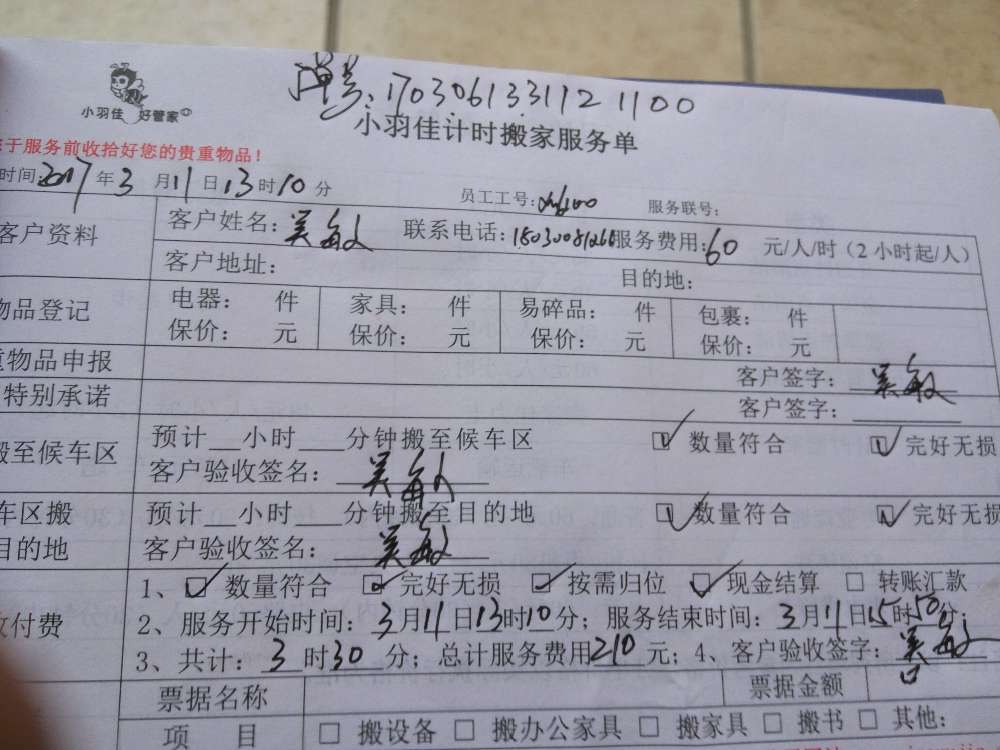 单号:170306133112 1100
小羽佳 好管家
小羽佳计时搬家服务单
于服务前收拾好您的贵重物品!
时间:2017年3月11日13时10分 员工工号: 服务联号:
客户资料 客户姓名:吴敏 联系电话: 服务费用:60元/人/时(2小时起/人)
客户地址: 目的地:
物品登记 电器: 件 家具: 件 易碎品: 件 包裹: 件
保价: 元 保价: 元 保价: 元 保价: 元
重物品申报 客户签字:吴敏
特别承诺 客户签字:
搬至候车区 预计__小时____分钟搬至候车区 ☑数量符合 ☑完好无损
客户验收签名:吴敏
车区搬 预计__小时____分钟搬至目的地 ☑数量符合 ☑完好无损
目的地 客户验收签名:吴敏
付费 1、☑数量符合 ☑完好无损 ☑按需归位 ☑现金结算 □转账汇款
2、服务开始时间:3月11日13时10分;服务结束时间:3月11日15时50分;
3、共计:3时30分;总计服务费用210元;4、客户验收签字:吴敏
票据名称 票据金额 口
项 目 □搬设备 □搬办公家具 □搬家具 □搬书 □其他: